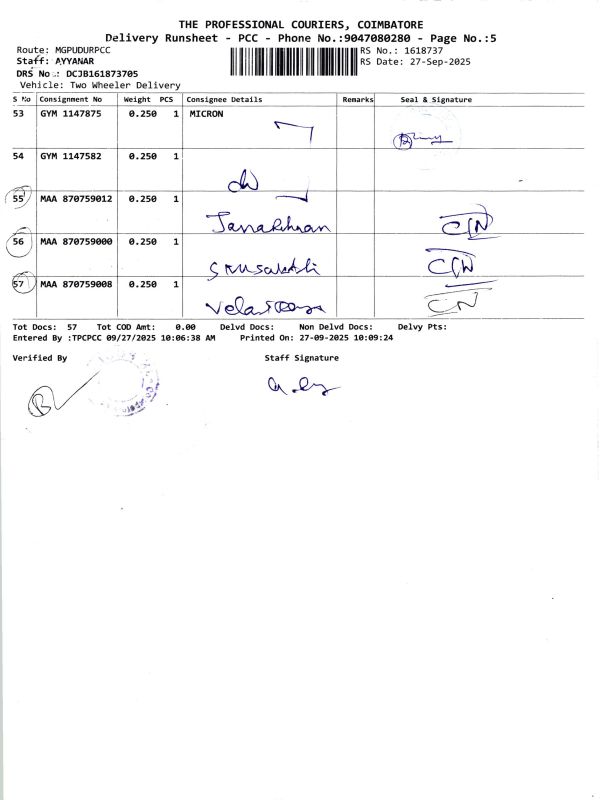 THE PROFESSIONAL COURIERS, COIMBATORE
Delivery Runsheet - PCC - Phone No.:9047080280 - Page No.:5
Route: MGPUDURPCC RS No.: 1618737
Staff: AYYANAR RS Date: 27-Sep-2025
DRS No.: DCJB161873705
Vehicle: Two Wheeler Delivery
S No Consignment No Weight PCS Consignee Details Remarks Seal & Signature
53 GYM 1147875 0.250 1 MICRON
54 GYM 1147582 0.250 1
55 MAA 870759012 0.250 1
56 MAA 870759000 0.250 1
57 MAA 870759008 0.250 1
Tot Docs: 57 Tot COD Amt: 0.00 Delvd Docs: Non Delvd Docs: Delvy Pts:
Entered By :TPCPCC 09/27/2025 10:06:38 AM Printed On: 27-09-2025 10:09:24
Verified By Staff Signature